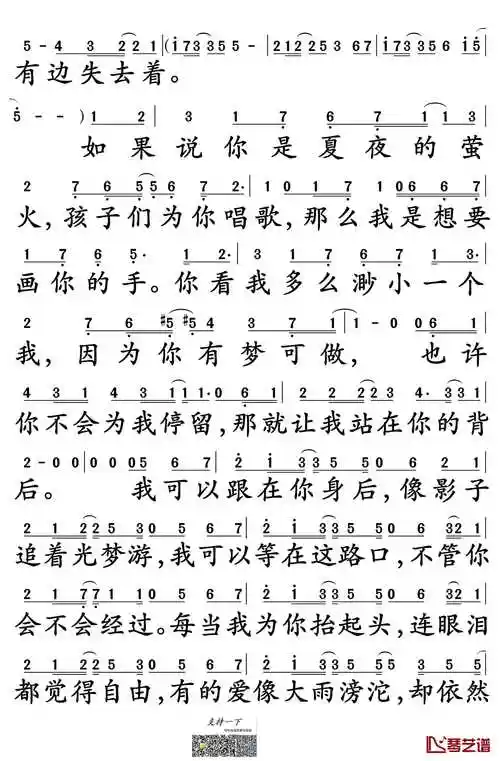 5 - 4 3 2 2 1 | (i 7 3 3 5 5 - | 2 1 2 2 5 3 6 7 | i 7 3 3 5 6 i 5 |
有边失去着。
5 - - ) 1 2 | 3 1 7 6 7 1 1 3 |
如果说你是夏夜的萤
2 7 6 5 5 6 7 2· | 1 0 1 7 1 0 6 6 7 |
火,孩子们为你唱歌,那么我是想要
1 7 6 5· 1 2· | 3 1 7 6 7 1 3· |
画你的手。你看我多么渺小一个
2 7 6 #5 #5 4 3 7 1 | 1 - 0 0 6 1 |
我,因为你有梦可做,也许
4 3 1 4 3 1 1 1 1· 0 6 1 | 2 2 2 2 2 3 4· 3 1 |
你不会为我停留,那就让我站在你的背
2 - 0 0 | 0 0 0 5 6 7 | 2 i 3 3 5 5 0 5 6 7 |
后。我可以跟在你身后,像影子
2 1 2 2 5 3 0 5 6 7 | 2 i 3 3 5 5 0 6 3 2 1 |
追着光梦游,我可以等在这路口,不管你
2 1 7 7 1 0 5 6 7 | 2 i 3 3 5 5 0 6 3 2 1 |
会不会经过。每当我为你抬起头,连眼泪
2 1 2 2 5 3 0 5 6 7 | 2 i 3 3 5 5 0 6 3 5 |
都觉得自由,有的爱像大雨滂沱,却依然
支持一下
琴艺谱